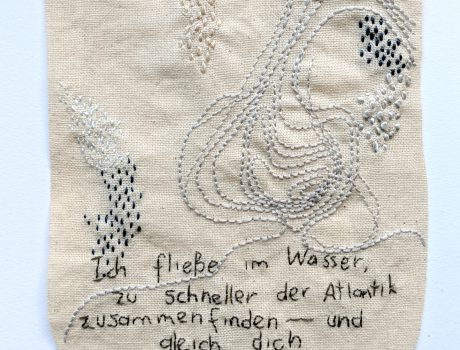 Ich fließe im Wasser,
zu schneller der Atlantik
zusammenfinden — und
gleich dich